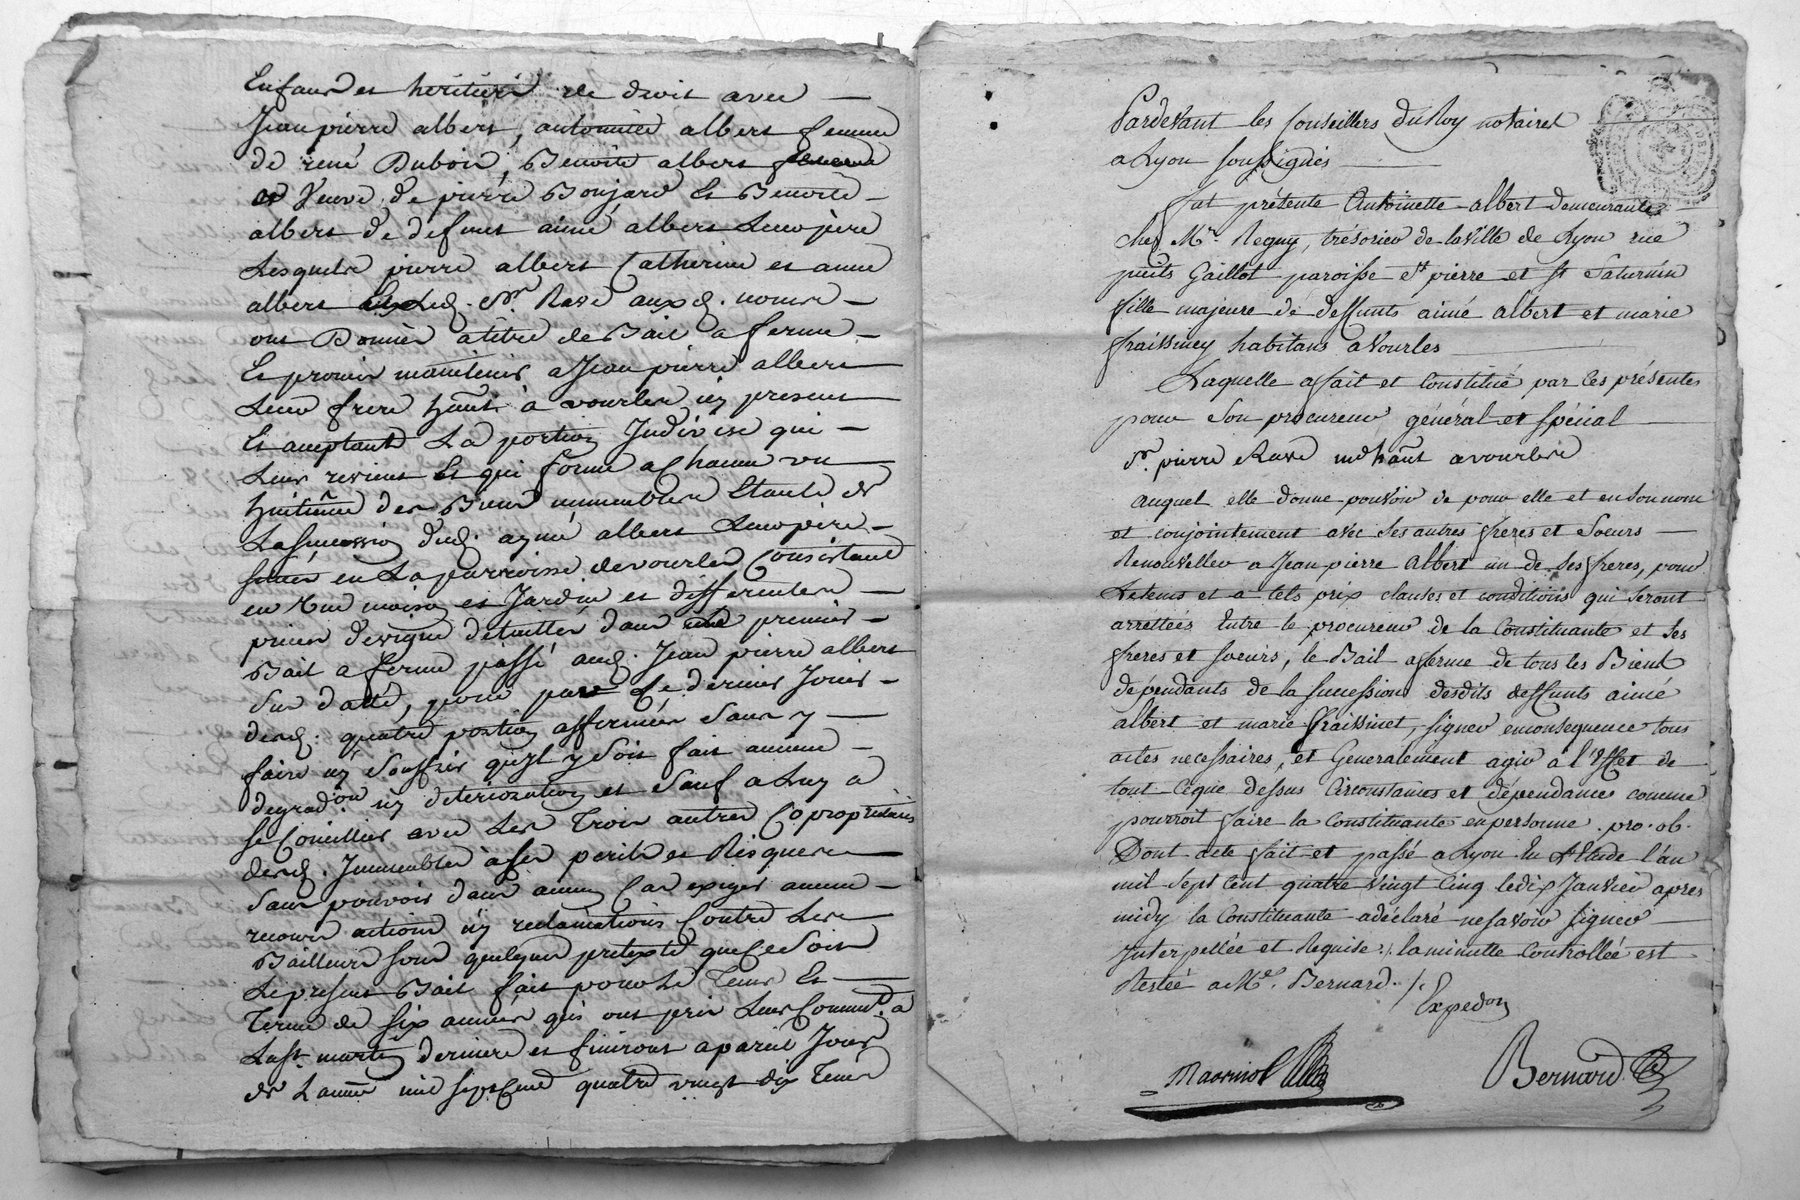 Enfans et héritiers de droit avec
Jean pierre albert, antoinette albert femme
de rené Duboin, Benoite albert femme
et Veuve de pierre Boujard et Benoite
albert de defunt aimé albert Leur père
Lesquels pierre albert Catherine et anne
albert Led. Sr. Rave auxd. noms
ont Donnés a titre de Bail a ferme
Et promis maintenir a Jean pierre albert
Leur frere habt. à vourles icy present
Et acceptant La portion Indivise qui
Leur revient Et qui forme a Chacun un
huitieme des Biens immeubles Etants de
La succession dud. aymé albert Leur père
situés en La parroisse de vourles Consistant
en une maison et Jardin et differentes
pieces de vigne détaillés dans une premier
Bail a ferme passé aud. Jean pierre albert
Sur datté, pour par Ce dernier Jouir
desd. quatre portions affermées Sans y
faire ny Souffrir qu'il y Soit fait aucune
degradon ny déteriorations et Sauf a Luy a
se Concillier avec Les Trois autres Copropriétaires
desd. Immeubles à ses perils et Risques
Sans pouvoir dans aucun Cas exiger aucun
recours actions ny reclamations Contre Les
Bailleurs sous quelque pretexte que Ce Soit
Le present Bail fait pour Le Tems Et
Terme de six années qui ont pris Leur Commt. a
La St. martin derniere et finiront a pareil Jour
de L'année mil sept Cent quatre vingt dix Tenir
Pardevant les Conseillers Du Roy notaires
a Lyon soussignés
fut présente Antoinette albert demeurante
chez Mr. Regny, trésorier de la ville de Lyon rue
puits Gaillot paroisse St pierre et St Saturnin
fille majeure de deffunts aimé albert et marie
fraissiney habitans a Vourles
Laquelle a fait et Constitué par Ces présentes
pour Son procureur général et spécial
Sr. pierre Rave mdhant a vourles
auquel elle donne pouvoir de pour elle et en Son nom
et conjointement avec Ses autres freres et Soeurs
Renouveller a Jean pierre Albert un de Ses freres, pour
Le tems et a tels prix clauses et conditions qui Seront
arrettées Entre le procureur de la Constituante et Ses
freres et soeurs, le Bail a ferme de tous les Biens
dépendants de la succession desdits deffunts aimé
albert et marie fraissinet, signer en consequence tous
actes necessaires, et Generalement agir à l'Effet de
tout Ce que dessus Circonstances et dépendances comme
pourroit faire la Constituante en personne. pro. ob.
Dont acte fait et passé a Lyon En l'Etude l'an
mil sept cent quatre vingt Cinq le dix Janvier apres
midy la Constituante a déclaré ne savoir signer
Interpellée et Requise ./. la minutte controllée est
Restée a Me. Bernard ./.
Expedon
Bernard